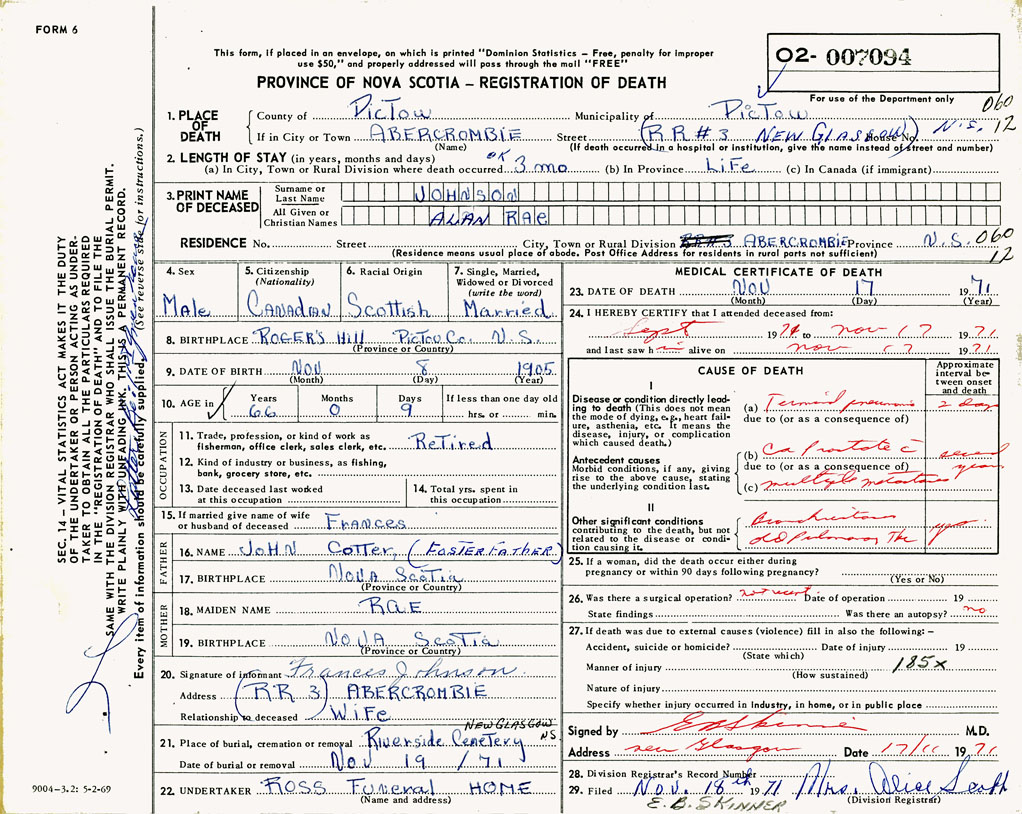 FORM 6
This form, if placed in an envelope, on which is printed "Dominion Statistics – Free, penalty for improper
use $50," and properly addressed will pass through the mail "FREE"
PROVINCE OF NOVA SCOTIA – REGISTRATION OF DEATH
02- 007094
For use of the Department only
060
12
1. PLACE OF DEATH
County of PicTow Municipality of PicTow
If in City or Town ABERCROMBIE Street (RR#3 NEW GLASGOW) House No. N.S.
(Name) (If death occurred in a hospital or institution, give the name instead of street and number)
2. LENGTH OF STAY (in years, months and days) OK
(a) In City, Town or Rural Division where death occurred 3 mo (b) In Province LiFe (c) In Canada (if immigrant)
3. PRINT NAME OF DECEASED
Surname or Last Name JOHNSON
All Given or Christian Names ALAN RAE
RESIDENCE No. Street City, Town or Rural Division RR#3 ABERCROMBIE Province N.S. 060
(Residence means usual place of abode. Post Office Address for residents in rural parts not sufficient) 12
4. Sex
Male
5. Citizenship
(Nationality)
Canadian
6. Racial Origin
Scottish
7. Single, Married,
Widowed or Divorced
(write the word)
Married
8. BIRTHPLACE ROGER'S Hill PicTou Co. N.S.
(Province or Country)
9. DATE OF BIRTH Nov 8 1905
(Month) (Day) (Year)
10. AGE in Years Months Days If less than one day old
66 0 9 hrs. or min.
OCCUPATION
11. Trade, profession, or kind of work as
fisherman, office clerk, sales clerk, etc. ReTired
12. Kind of industry or business, as fishing,
bank, grocery store, etc.
13. Date deceased last worked
at this occupation
14. Total yrs. spent in
this occupation
15. If married give name of wife
or husband of deceased Frances
FATHER
16. NAME JOHN Cotter, (FOSTER FATHER)
17. BIRTHPLACE Nova Scotia
MOTHER
18. MAIDEN NAME RAE
19. BIRTHPLACE Nova Scotia
(Province or Country)
20. Signature of informant Frances Johnson.
Address (RR 3) ABERCROMBIE
Relationship to deceased WiFe
NEW GLASGOW
NS
21. Place of burial, cremation or removal Riverside Cemetery
Date of burial or removal Nov 19 /71
22. UNDERTAKER ROSS Funeral HOME
(Name and address)
MEDICAL CERTIFICATE OF DEATH
23. DATE OF DEATH NOV 17 1971
(Month) (Day) (Year)
24. I HEREBY CERTIFY that I attended deceased from:
Sept 19 to Nov 17 1971
and last saw him alive on Nov 17 1971
CAUSE OF DEATH
Approximate
interval be-
tween onset
and death
I
Disease or condition directly lead-
ing to death (This does not mean
the mode of dying, e.g., heart fail-
ure, asthenia, etc. It means the
disease, injury, or complication
which caused death.)
(a) Terminal pneumonia 2 days
due to (or as a consequence of)
Antecedent causes
Morbid conditions, if any, giving
rise to the above cause, stating
the underlying condition last.
(b) Ca Prostate c̄ several
due to (or as a consequence of) years
(c) multiple metastases
II
Other significant conditions
contributing to the death, but not
related to the disease or condi-
tion causing it.
old Pulmonary The yrs.
25. If a woman, did the death occur either during
pregnancy or within 90 days following pregnancy?
(Yes or No)
26. Was there a surgical operation? not recent Date of operation 19
State findings Was there an autopsy? no
27. If death was due to external causes (violence) fill in also the following: –
Accident, suicide or homicide? Date of injury 19
(State which)
Manner of injury 185x
(How sustained)
Nature of injury
Specify whether injury occurred in Industry, in home, or in public place
Signed by EB Skinner M.D.
Address New Glasgow Date 17/11 1971
28. Division Registrar's Record Number
29. Filed Nov. 18th 1971 Mrs. Alice Scott
(Division Registrar)
E. B. SKINNER
SEC. 14 – VITAL STATISTICS ACT MAKES IT THE DUTY
OF THE UNDERTAKER OR PERSON ACTING AS UNDER-
TAKER TO OBTAIN ALL THE PARTICULARS REQUIRED
IN THE "REGISTRATION OF DEATH" AND TO FILE THE
SAME WITH THE DIVISION REGISTRAR WHO SHALL ISSUE THE BURIAL PERMIT.
WRITE PLAINLY WITH UNFADING INK. THIS IS A PERMANENT RECORD.
Every item of information should be carefully supplied (See reverse side for instructions.)
9004-3.2: 5-2-69